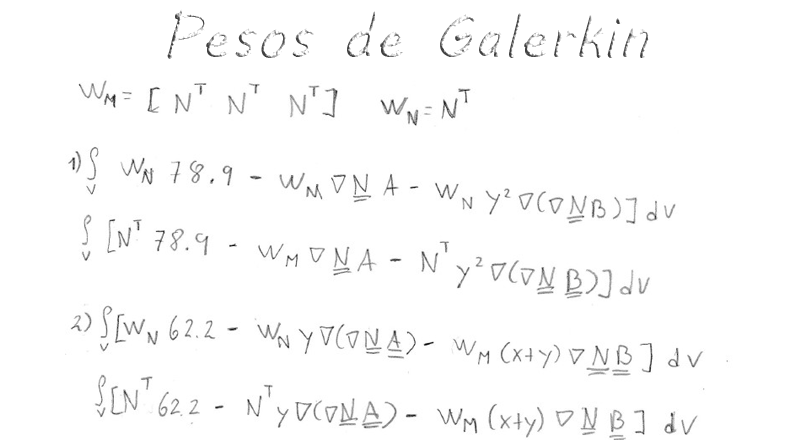 Pesos de Galerkin
W_M = [N^T N^T N^T] W_N = N^T
1) ∫_V W_N 78.9 - W_M ∇N̳ A - W_N y² ∇(∇N̳B)] dV
∫_V [N^T 78.9 - W_M ∇N̳A - N^T y² ∇(∇N̳ B̳)] dV
2) ∫_V [W_N 62.2 - W_N y∇(∇N̳ A̳) - W_M (x+y) ∇N̳ B̳] dV
∫_V [N^T 62.2 - N^T y∇(∇N̳ A̳) - W_M (x+y) ∇N̳ B̳] dV